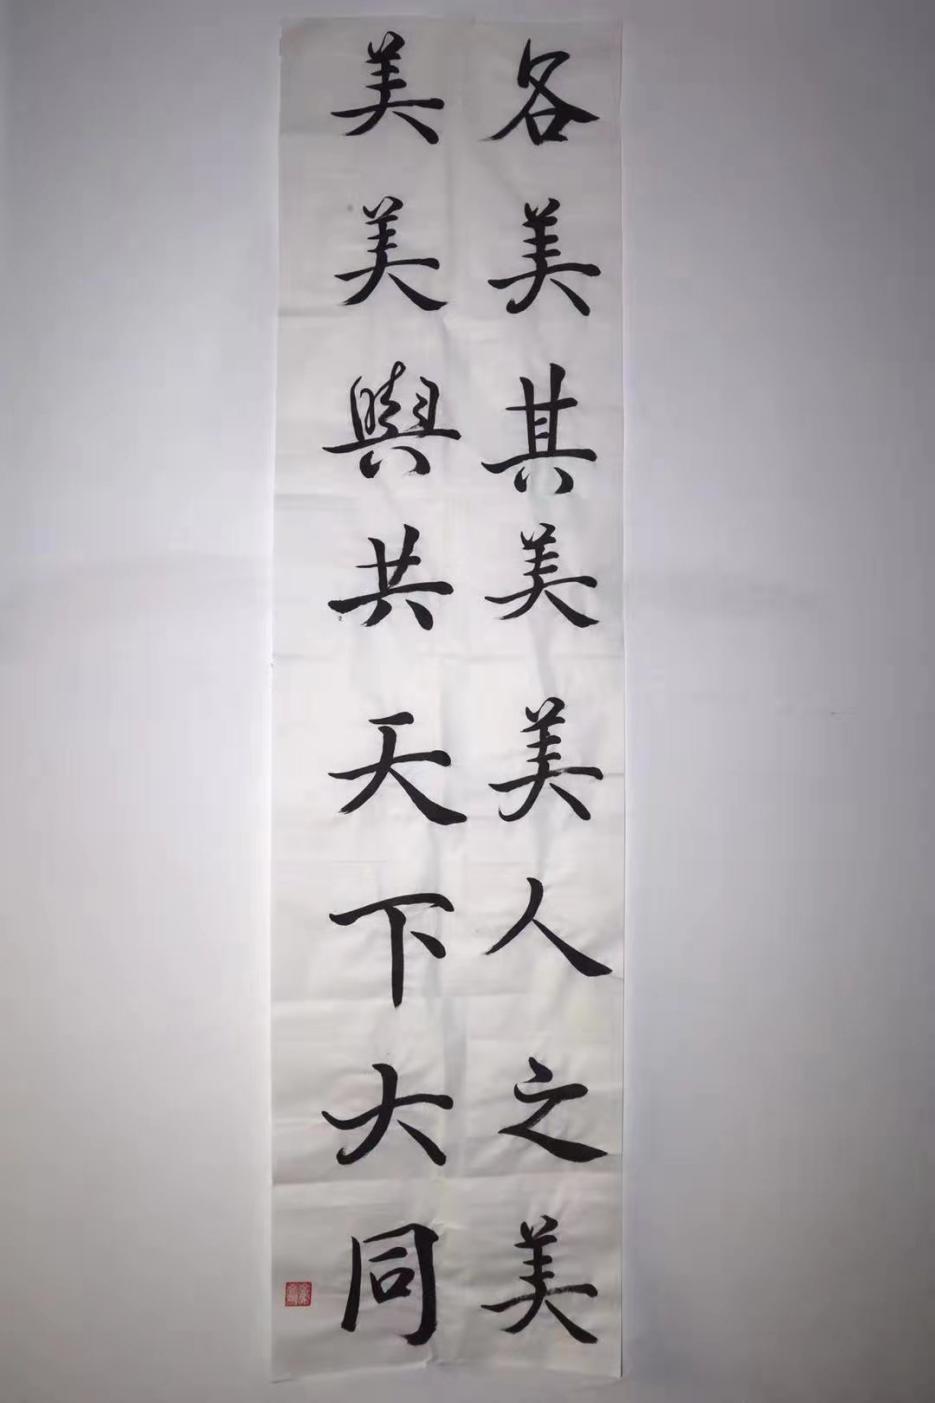 各美其美美人之美
美美與共天下大同